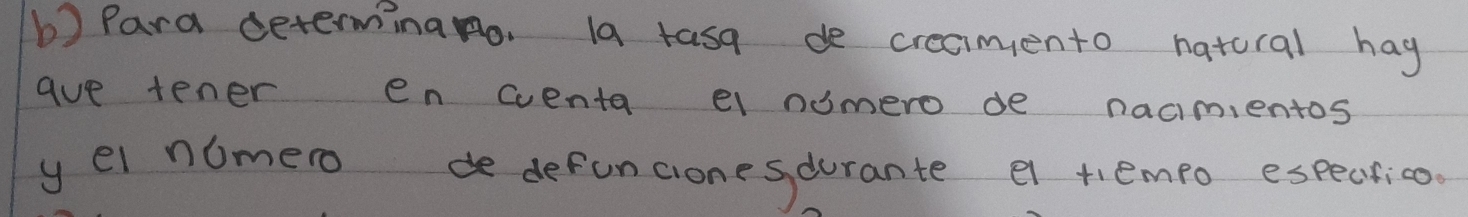 b) Para determinarno. la tasa de crecimiento natural hay
que tener en cuenta el número de nacimientos
y el número de defunciones, durante el tiempo especifico.